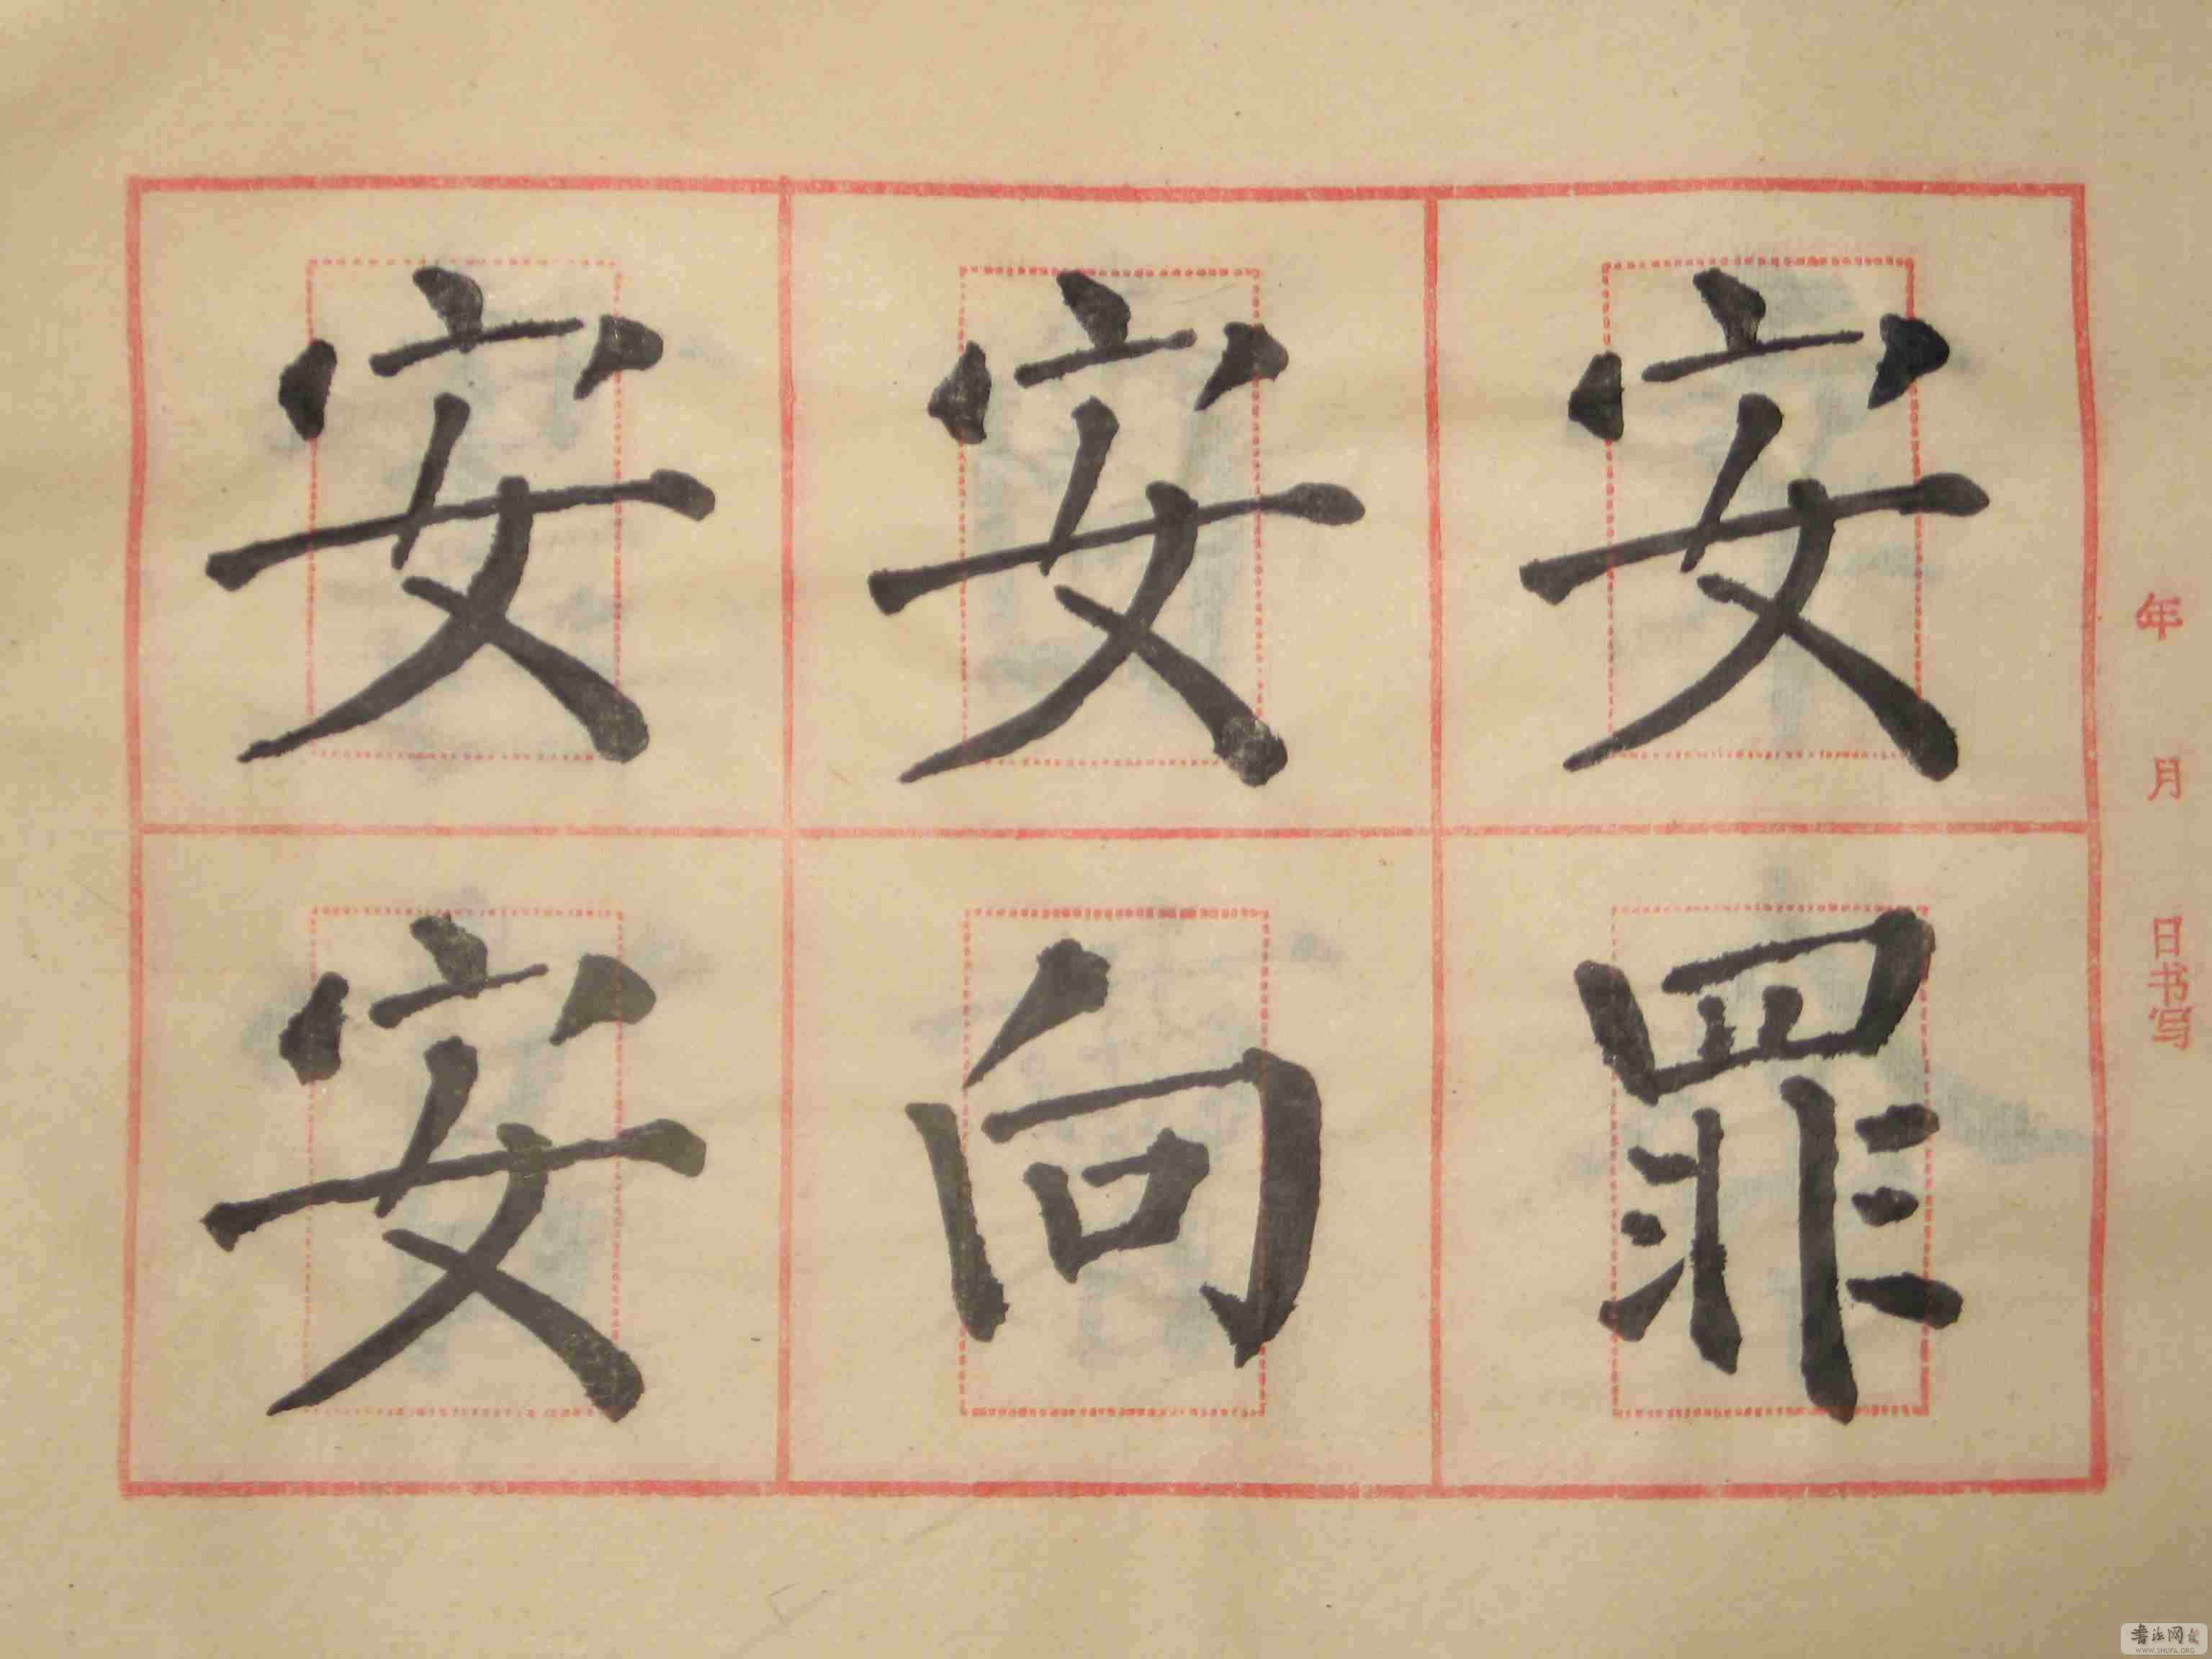 安 安 安
安 向 罪
年 月 日书写
书法网
WWW.SHUFA.ORG